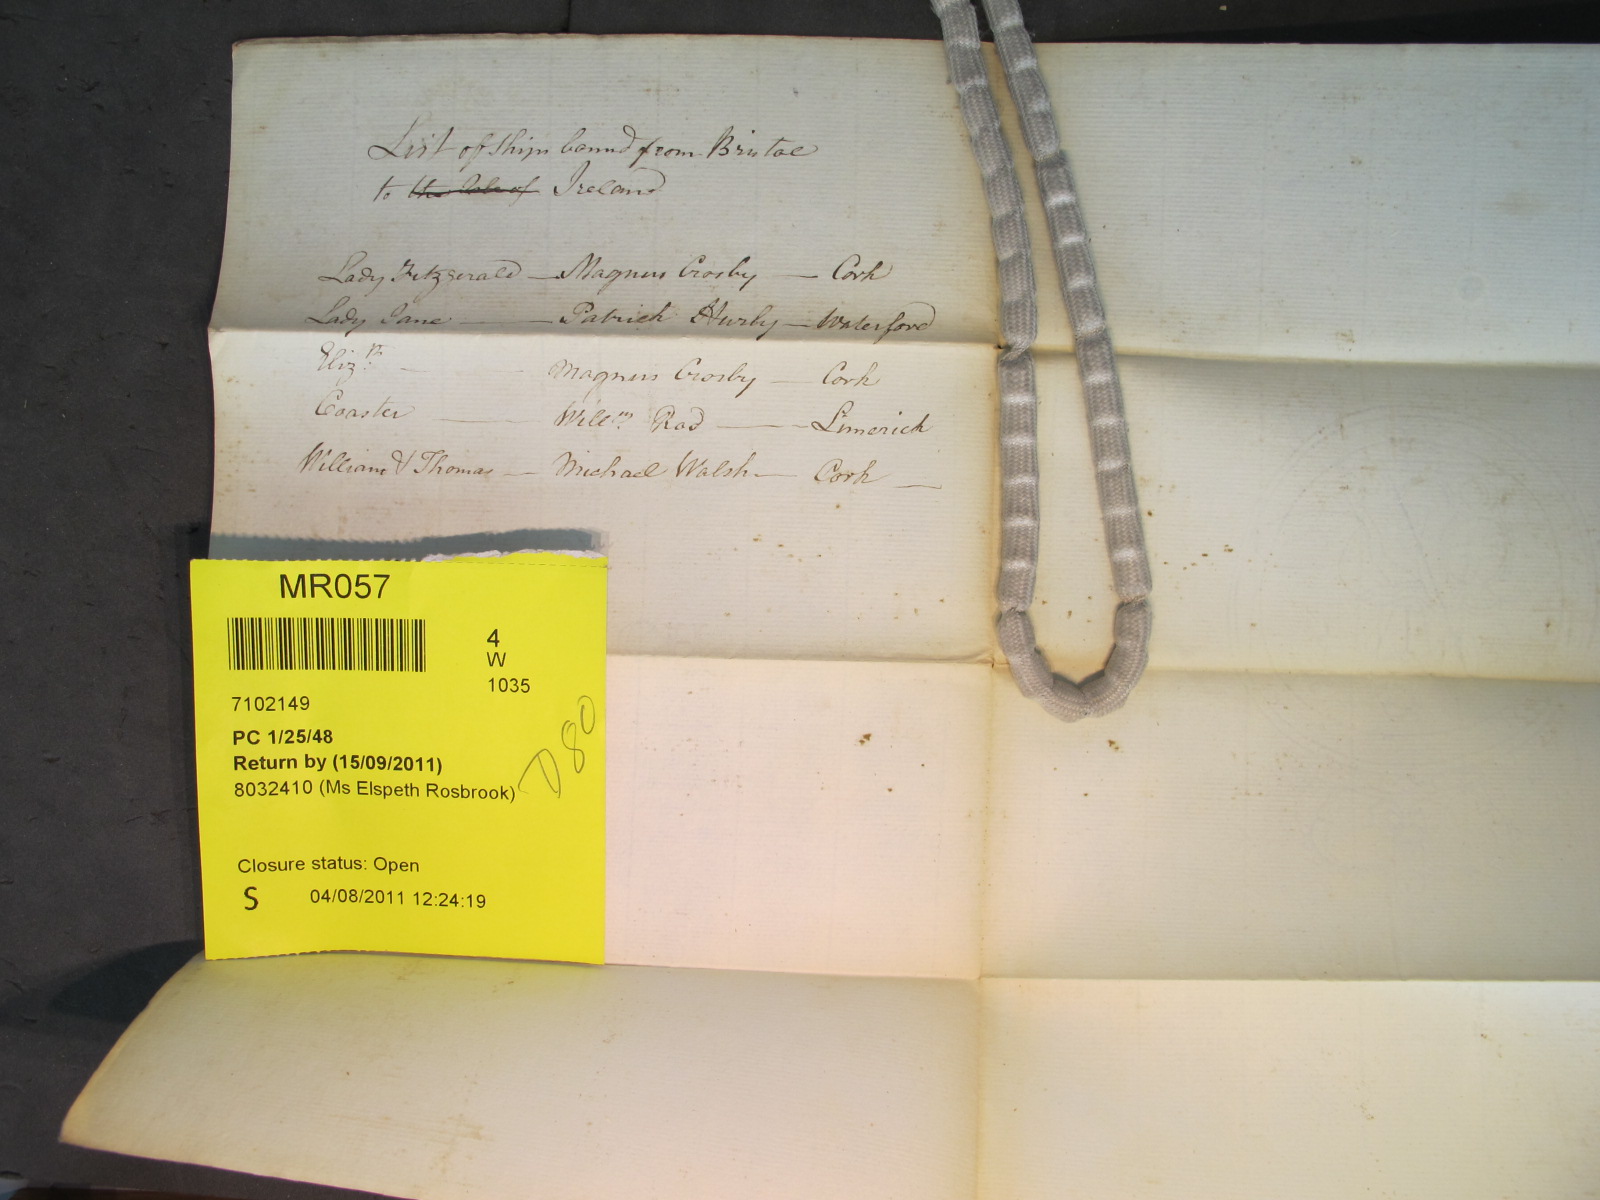 List of Ships bound from Bristol
to the Isle of Ireland
Lady Fitzgerald — Magnus Crosby — Cork
Lady Jane — Patrick Hurly — Waterford
Eliz.th — Magnus Crosby — Cork
Coaster — Will.m Rod — Limerick
William & Thomas — Michael Walsh — Cork —
MR057
4
W
1035
7102149
PC 1/25/48
Return by (15/09/2011)
8032410 (Ms Elspeth Rosbrook)
D80
Closure status: Open
S 04/08/2011 12:24:19